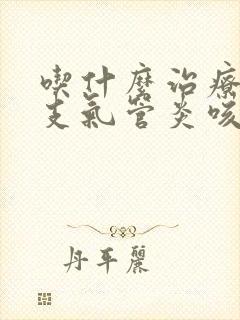 喫什麼治療
支氣管炎咳
丹平麗